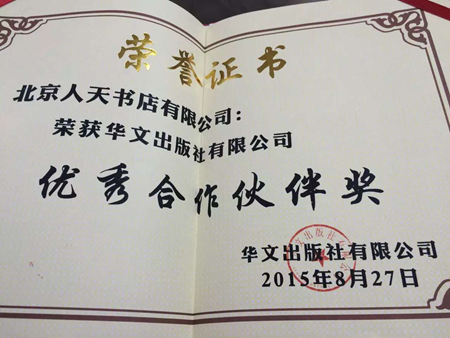 荣誉证书
北京人天书店有限公司：
荣获华文出版社有限公司
优秀合作伙伴奖
华文出版社有限公司
2015年8月27日